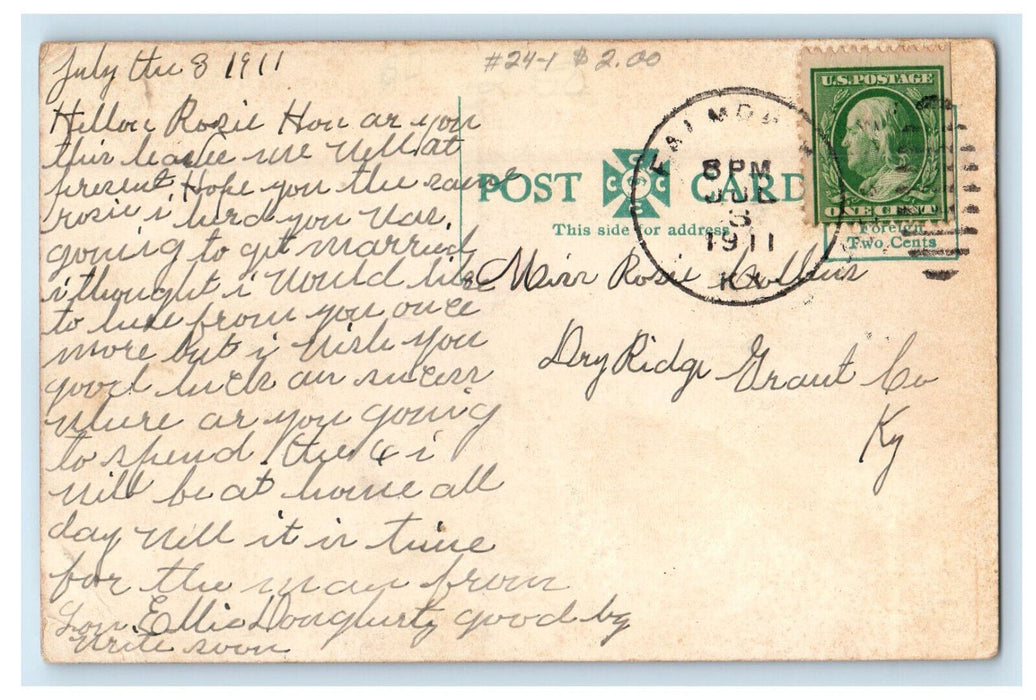 July the 8 1911
#24-1 $2.00
Hellow Rozie How ar you
this leave me Well at
present Hope you the same
rosie i herd you Was
going to get married
i thought i Would like
to here from you once
more but i Wish you
good luck an sucess
Where ar you going
to spend the 4 i
Will be at home all
day Well it is time
for the man from
Ellis Dougherty good by
Write soon
U.S. POSTAGE
ONE CENT
POST CARD
This side for address
Foreign
Two Cents
8 PM
JUL
3
1911
KY
Miss Rosie Collins
Dry Ridge Grant Co
Ky